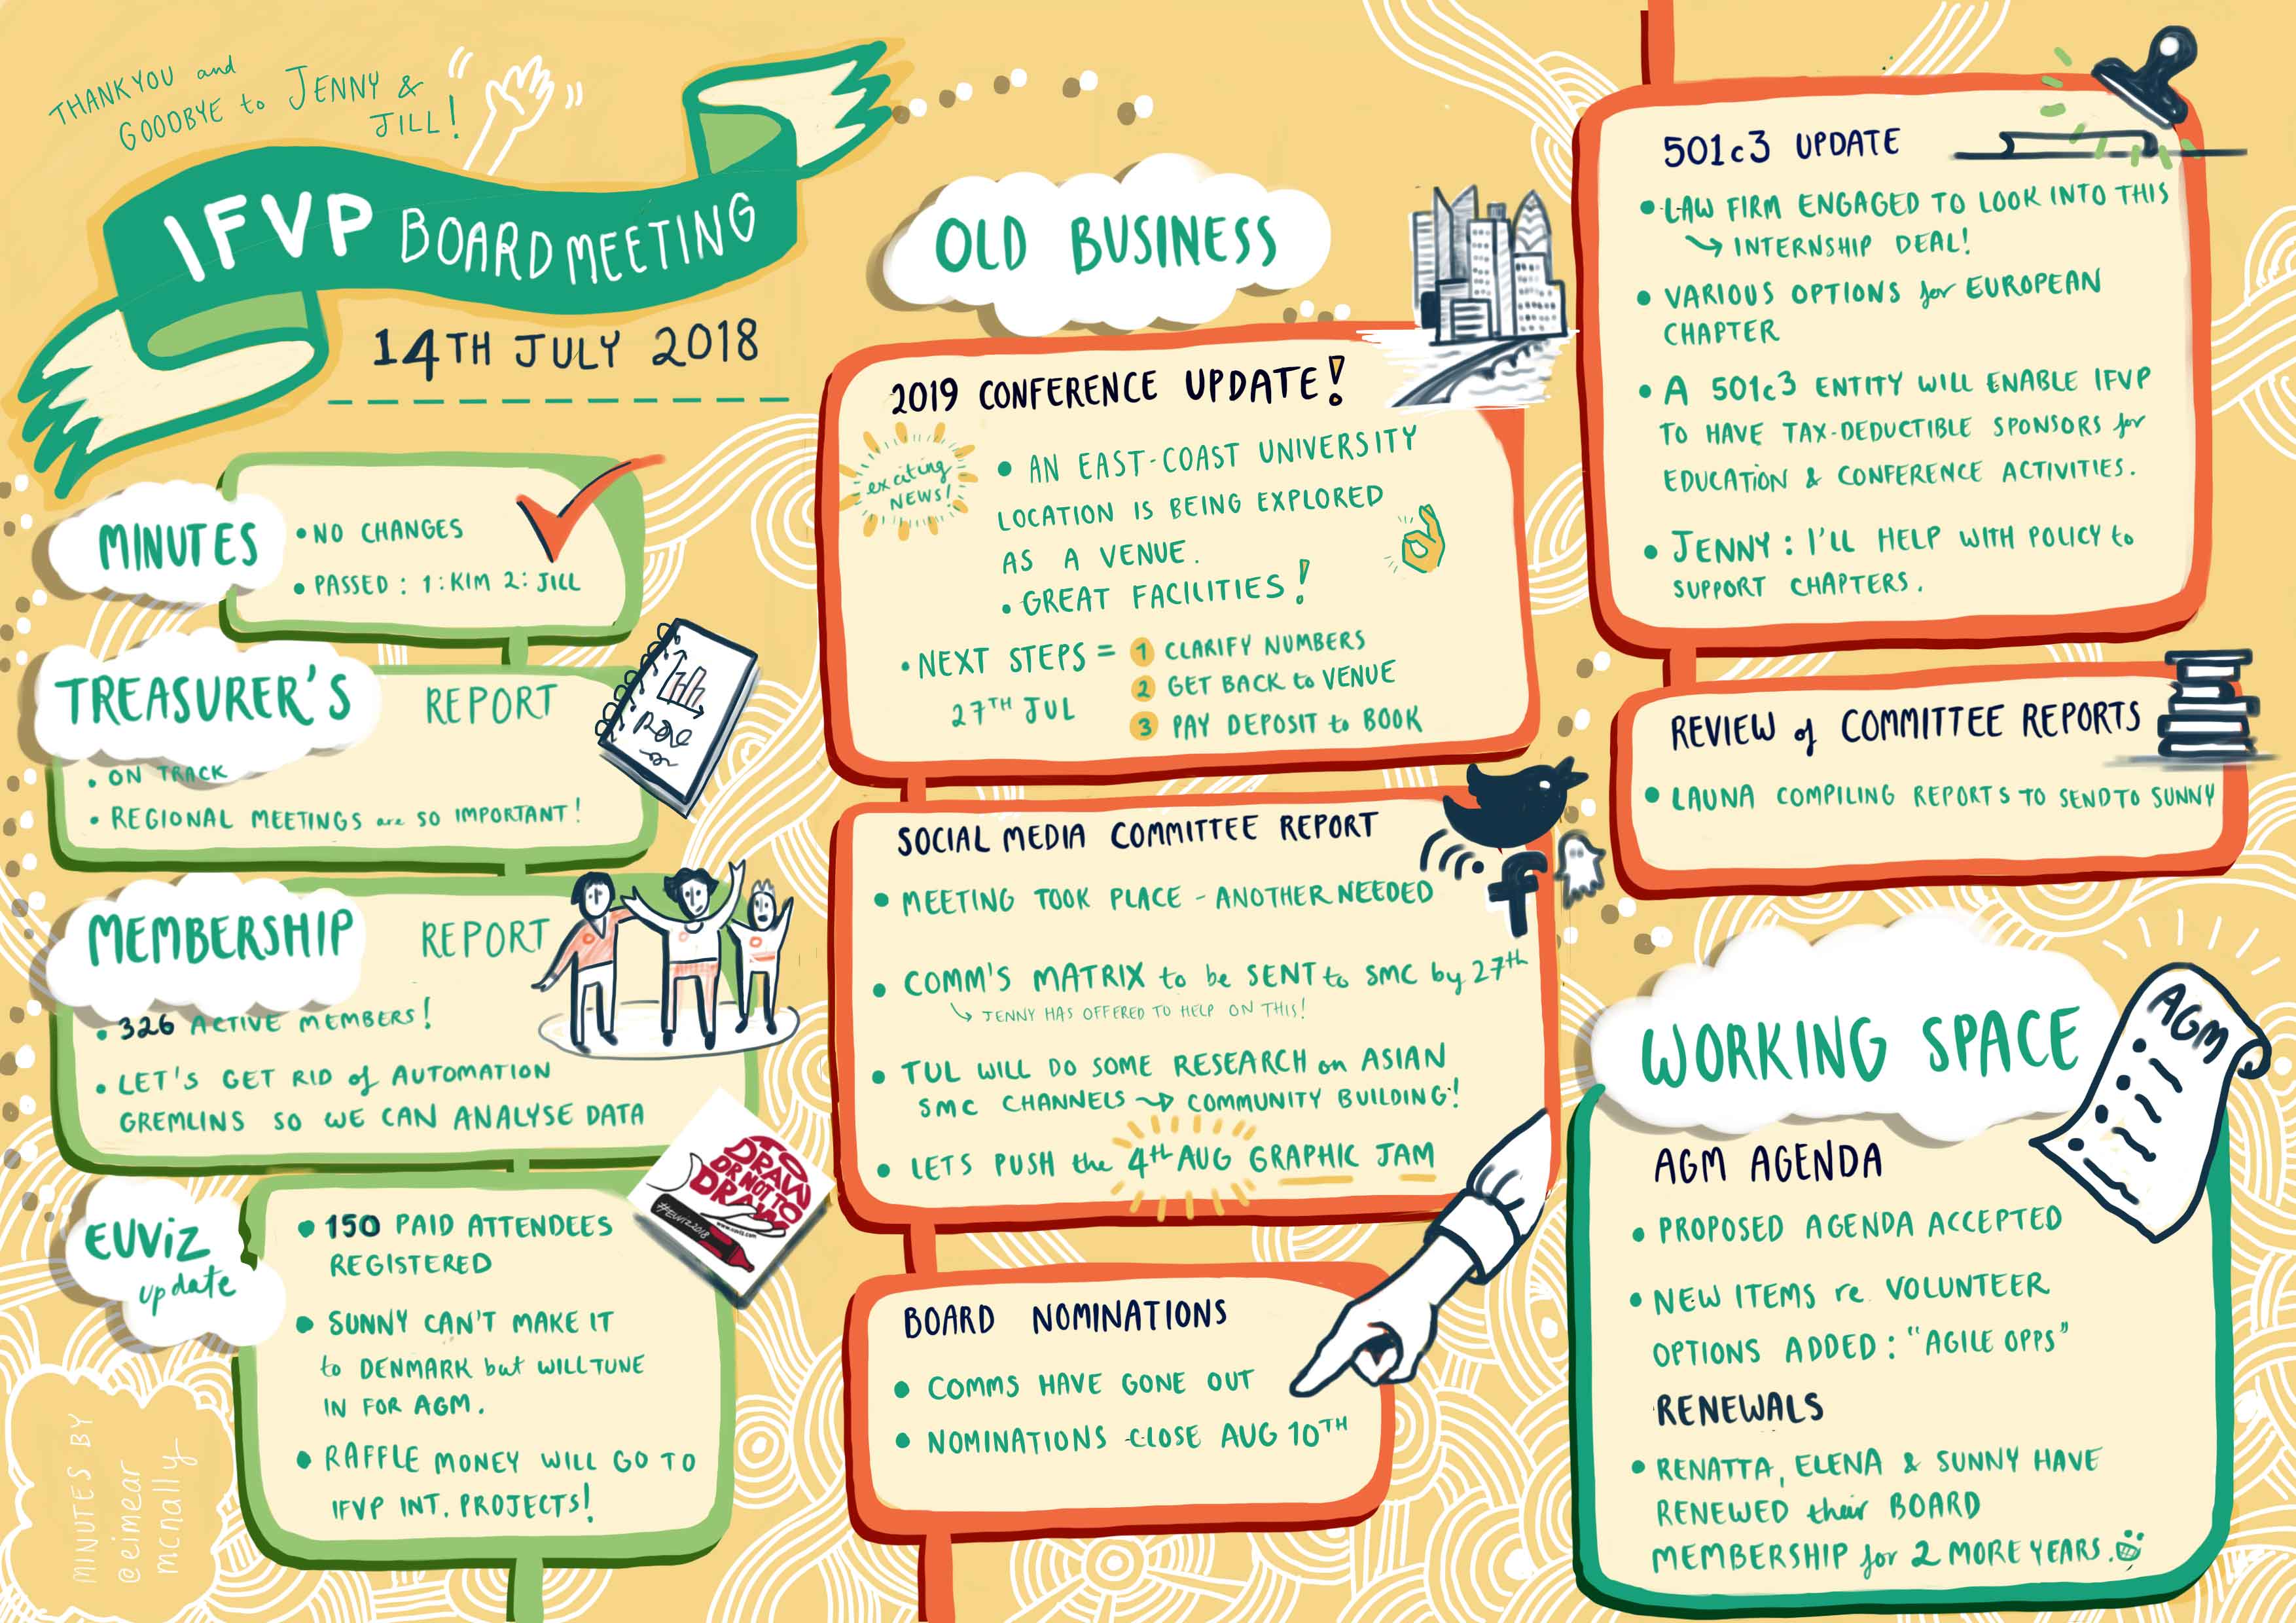 THANKYOU and
GOODBYE to JENNY &
JILL!
IFVP BOARD MEETING
14TH JULY 2018
MINUTES
• NO CHANGES
• PASSED : 1: KIM 2: JILL
TREASURER'S REPORT
• ON TRACK
• REGIONAL MEETINGS are SO IMPORTANT!
MEMBERSHIP REPORT
• 326 ACTIVE MEMBERS!
• LET'S GET RID of AUTOMATION
GREMLINS SO WE CAN ANALYSE DATA
EUViz
update
TO
DRAW
OR NOT TO
DRAW
#EUVIZ2018
• 150 PAID ATTENDEES
REGISTERED
• SUNNY CAN'T MAKE IT
to DENMARK but WILL TUNE
IN FOR AGM.
• RAFFLE MONEY WILL GO TO
IFVP INT. PROJECTS!
MINUTES BY
@eimear
mcnally
OLD BUSINESS
2019 CONFERENCE UPDATE!
exciting
NEWS!
• AN EAST-COAST UNIVERSITY
LOCATION IS BEING EXPLORED
AS A VENUE.
• GREAT FACILITIES!
• NEXT STEPS =
27TH JUL
1 CLARIFY NUMBERS
2 GET BACK to VENUE
3 PAY DEPOSIT to BOOK
SOCIAL MEDIA COMMITTEE REPORT
• MEETING TOOK PLACE - ANOTHER NEEDED
• COMM'S MATRIX to be SENT to SMC by 27th
↳ JENNY HAS OFFERED TO HELP ON THIS!
• TUL WILL DO SOME RESEARCH on ASIAN
SMC CHANNELS → COMMUNITY BUILDING!
• LETS PUSH the 4th AUG GRAPHIC JAM
BOARD NOMINATIONS
• COMMS HAVE GONE OUT
• NOMINATIONS CLOSE AUG 10TH
501c3 UPDATE
• LAW FIRM ENGAGED TO LOOK INTO THIS
↳ INTERNSHIP DEAL!
• VARIOUS OPTIONS for EUROPEAN
CHAPTER
• A 501c3 ENTITY WILL ENABLE IFVP
TO HAVE TAX-DEDUCTIBLE SPONSORS for
EDUCATION & CONFERENCE ACTIVITIES.
• JENNY : I'LL HELP WITH POLICY to
SUPPORT CHAPTERS.
REVIEW of COMMITTEE REPORTS
• LAUNA COMPILING REPORTS TO SEND TO SUNNY
WORKING SPACE
AGM
AGM AGENDA
• PROPOSED AGENDA ACCEPTED
• NEW ITEMS re. VOLUNTEER
OPTIONS ADDED : "AGILE OPPS"
RENEWALS
• RENATTA, ELENA & SUNNY HAVE
RENEWED their BOARD
MEMBERSHIP for 2 MORE YEARS.